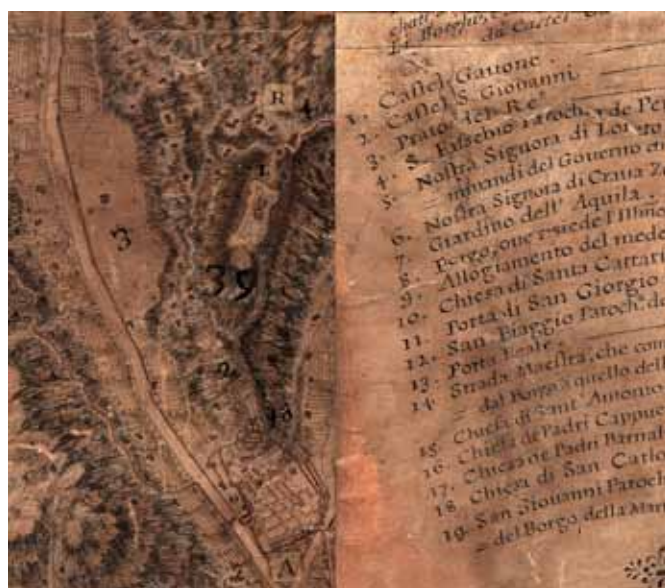 R
4
1
3
39
2
A
da Castel
1. Castel Gauone.
2. Castel S. Giovanni
3. Prato del Re.
4. S. Eusebio Paroch. de Per
5. Nostra Signora di Loreto
mmandi del Gouerno
6. Nostra Signora di Craua
7. Giardino dell' Aquila.
8. Borgo, oue risiede l'Illmo
9. Allogiamento del mede
10. Chiesa di Santa Cattari
11. Porta di San Giorgio
12. San Biaggio Paroch. d
13. Porta Reale.
14. Strada Maestra, che com
dal Borgo a quello dell
15. Chiesa di Sant' Antonio
16. Chiesa de Padri Cappuc
17. Chiesa de Padri Barnab
18. Chiesa di San Carlo
19. San Giouanni Paroch
del Borgo della Mari